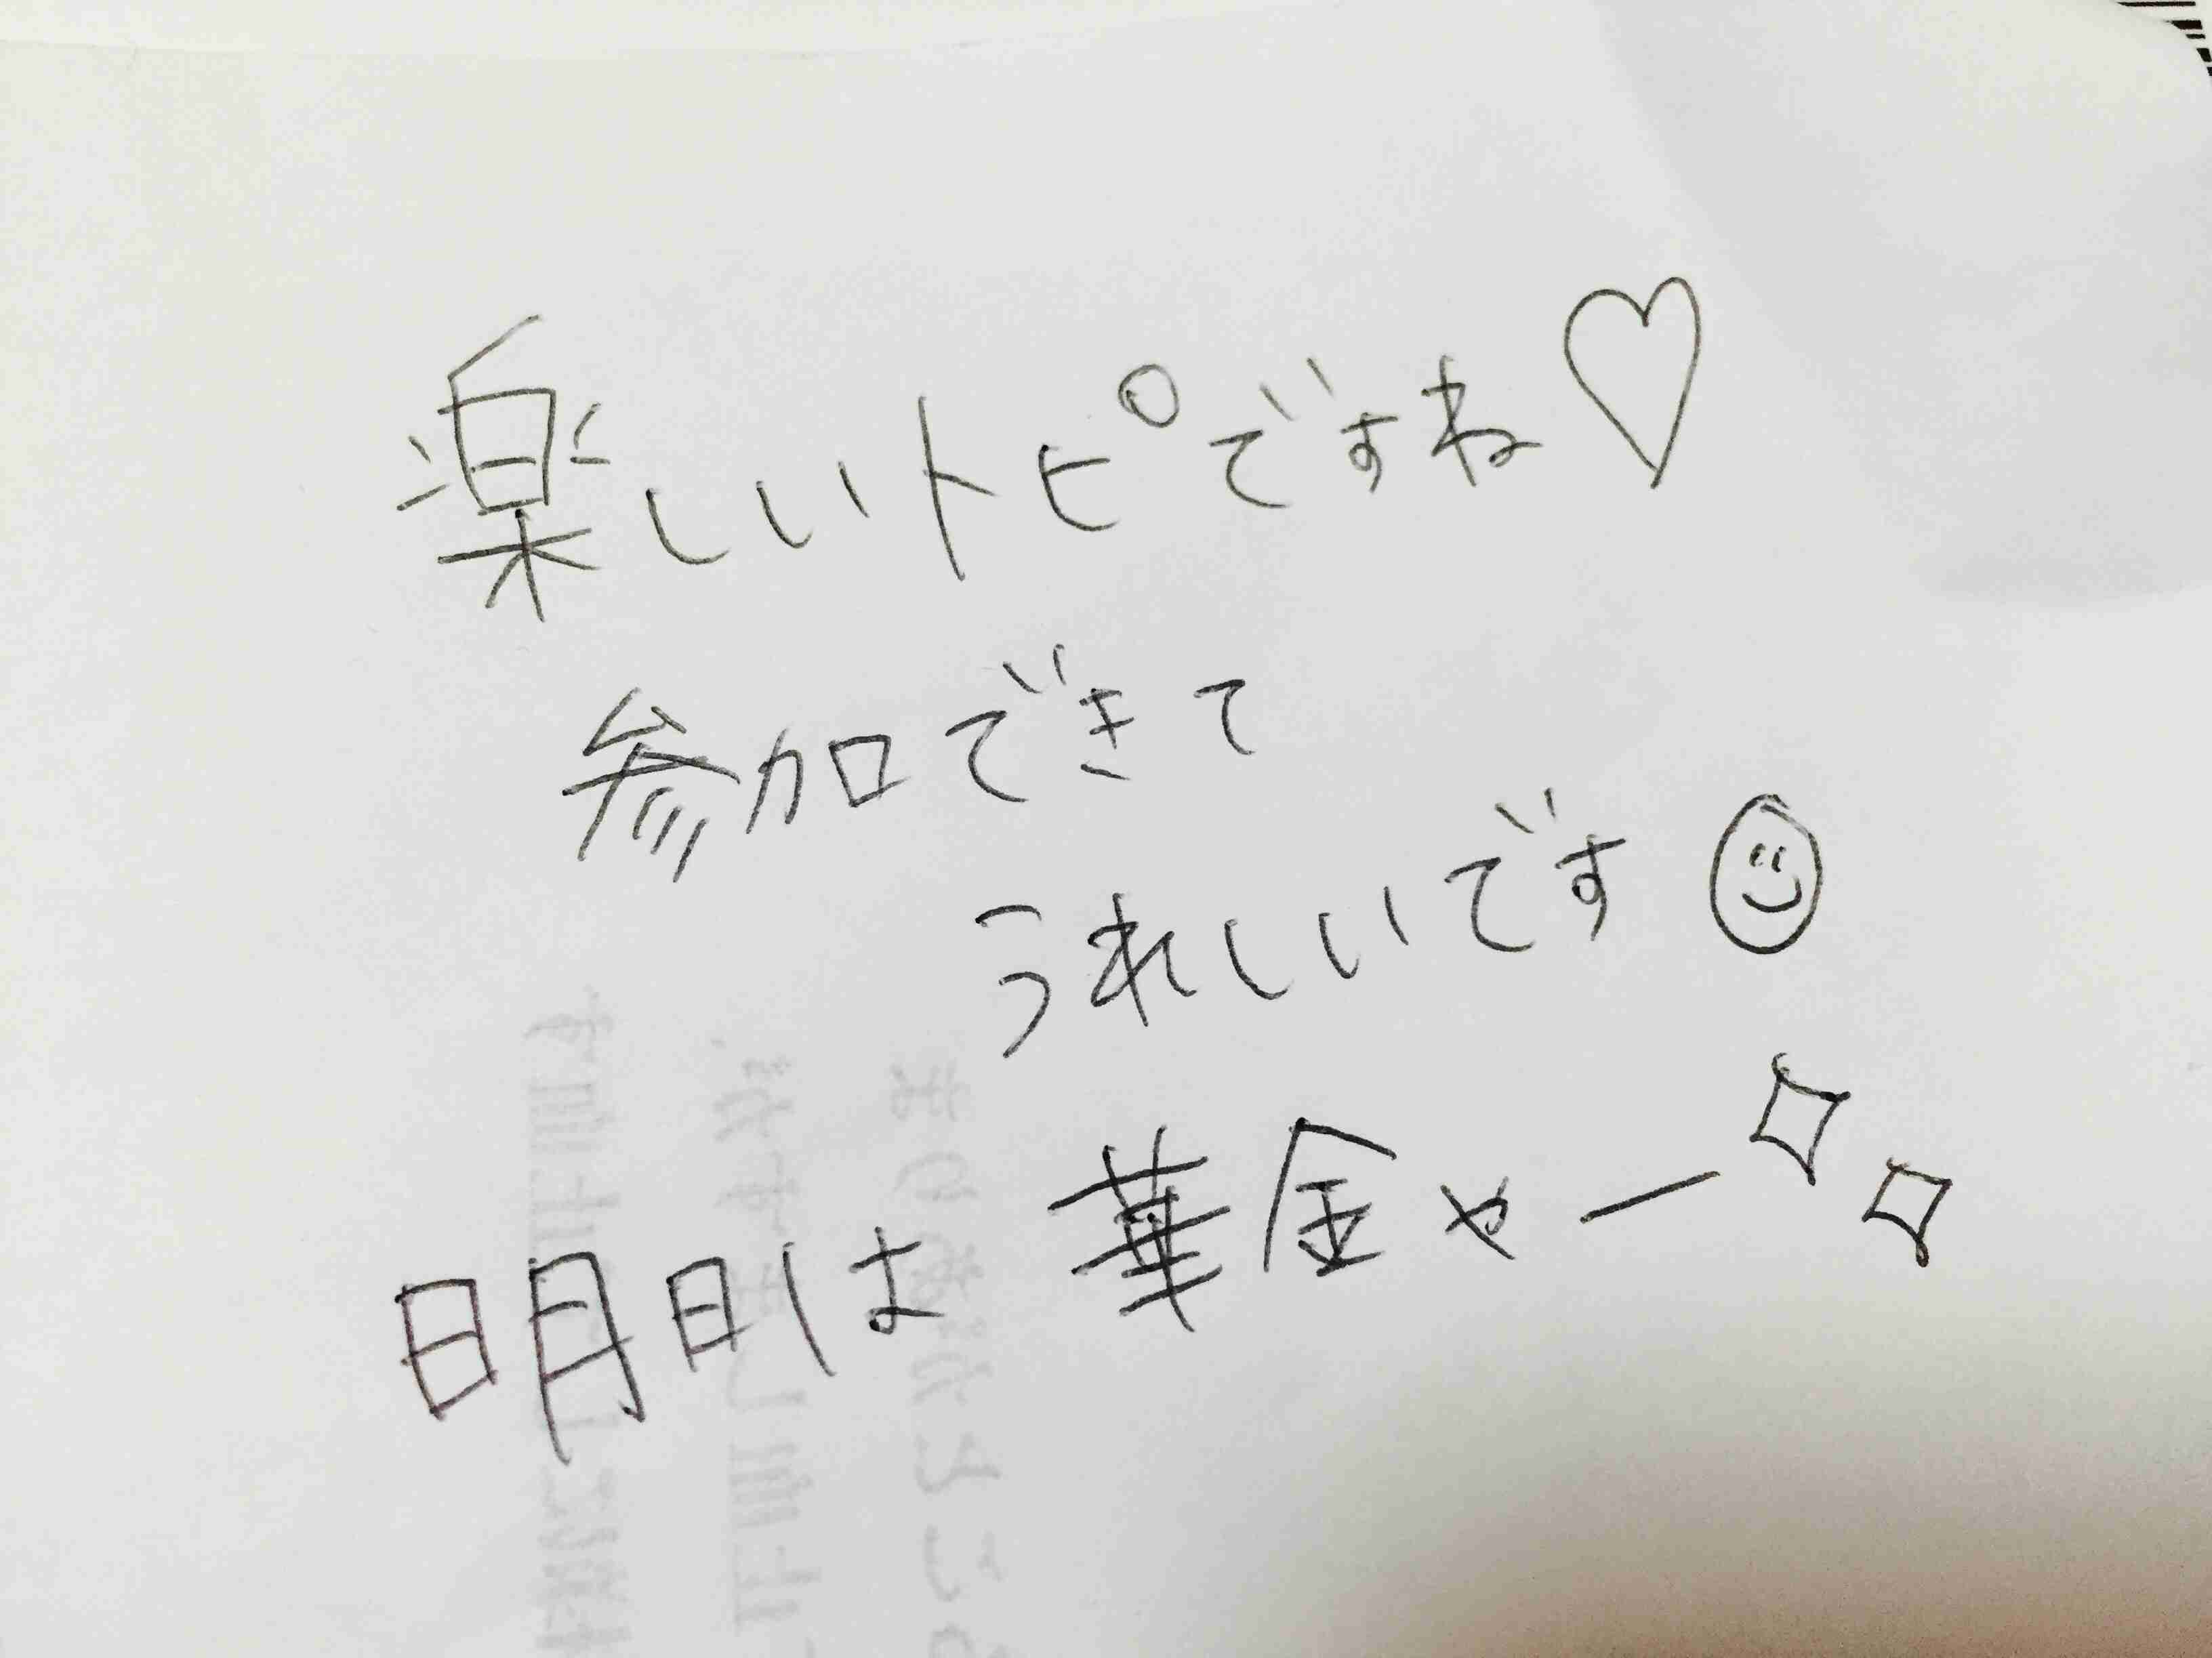 楽しいトピですね♡
参加できて
うれしいです☺
明日は華金やー✧✧